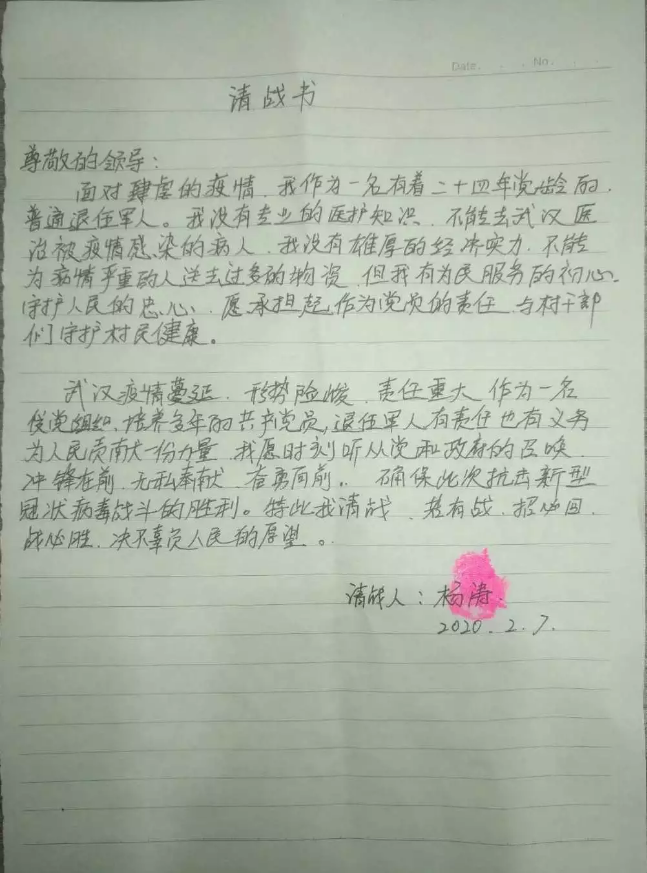 Date. . . No. . .
请战书
尊敬的领导：
面对肆虐的疫情、我作为一名有着二十四年党龄的、
普通退伍军人。我没有专业的医护知识、不能去武汉医
治被疫情感染的病人、我没有雄厚的经济实力、不能
为病情严重的人送去过多的物资 但我有为民服务的初心、
守护人民的忠心、愿承担起作为党员的责任、与村干部
们守护村民健康。
武汉疫情蔓延、形势险峻、责任重大 作为一名
受党组织、培养多年的共产党员，退伍军人有责任也有义务
为人民贡献一份力量、我愿时刻听从党和政府的召唤、
冲锋在前、无私奉献、奋勇向前。确保此次抗击新型
冠状病毒战斗的胜利。特此我请战、若有战、招必回、
战必胜、决不辜负人民的厚望。
请战人：杨涛
2020.2.7.